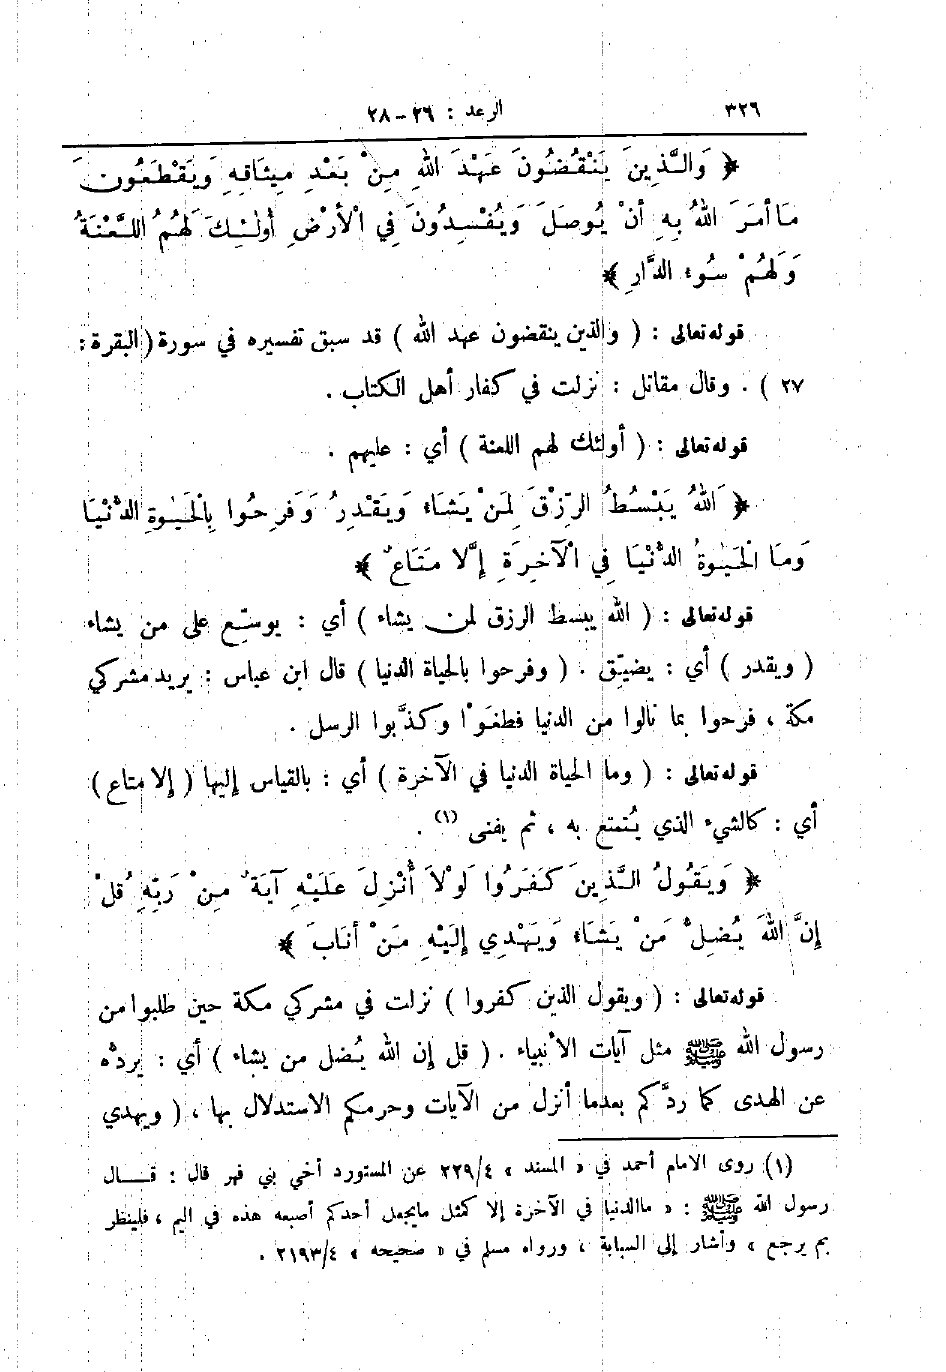 ٣٢٦ الرعد : ٢٦ – ٢٨
﴿ وَالَّذِينَ يَنْقُضُونَ عَهْدَ اللهِ مِنْ بَعْدِ مِيثَاقِهِ وَيَقْطَعُونَ
مَا أَمَرَ اللهُ بِهِ أَنْ يُوصَلَ وَيُفْسِدُونَ فِي الْأَرْضِ أُولٰئِكَ لَهُمُ اللَّعْنَةُ
وَلَهُمْ سُوءُ الدَّارِ ﴾
قوله تعالى : ( والذين ينقضون عهد الله ) قد سبق تفسيره في سورة ( البقرة :
٢٧ ) . وقال مقاتل : نزلت في كفار أهل الكتاب .
قوله تعالى : ( أولئك لهم اللعنة ) أي : عليهم .
﴿ اَللهُ يَبْسُطُ الرِّزْقَ لِمَنْ يَشَاءُ وَيَقْدِرُ وَفَرِحُوا بِالْحَيٰوةِ الدُّنْيَا
وَمَا الْحَيٰوةُ الدُّنْيَا فِي الْآخِرَةِ إِلَّا مَتَاعٌ ﴾
قوله تعالى : ( الله يبسط الرزق لمن يشاء ) أي : يوسِّع على من يشاء
( ويقدر ) أي : يضيِّق . ( وفرحوا بالحياة الدنيا ) قال ابن عباس : يريد مشركي
مكة ، فرحوا بما نالوا من الدنيا فطغَوْا وكذَّبوا الرسل .
قوله تعالى : ( وما الحياة الدنيا في الآخرة ) أي : بالقياس إليها ( إلا متاع )
أي : كالشيء الذي يُتمتع به ، ثم يفنى (١) .
﴿ وَيَقُولُ الَّذِينَ كَفَرُوا لَوْلَا أُنْزِلَ عَلَيْهِ آيَةٌ مِنْ رَبِّهِ قُلْ
إِنَّ اللهَ يُضِلُّ مَنْ يَشَاءُ وَيَهْدِي إِلَيْهِ مَنْ أَنَابَ ﴾
قوله تعالى : ( ويقول الذين كفروا ) نزلت في مشركي مكة حين طلبوا من
رسول الله ﷺ مثل آيات الأنبياء . ( قل إن الله يُضل من يشاء ) أي : يردُّه
عن الهدى كما ردَّكم بعدما أنزل من الآيات وحرمكم الاستدلال بها ، ( ويهدي
(١) روى الامام أحمد في « المسند » ٢٢٩/٤ عن المستورد أخي بني فهر قال : قـــال
رسول الله ﷺ : « ما الدنيا في الآخرة إلا كمثل ما يجعل أحدكم أصبعه هذه في اليم ، فلينظر
بم يرجع » وأشار إلى السبابة ، ورواه مسلم في « صحيحه » ٢١٩٣/٤ .